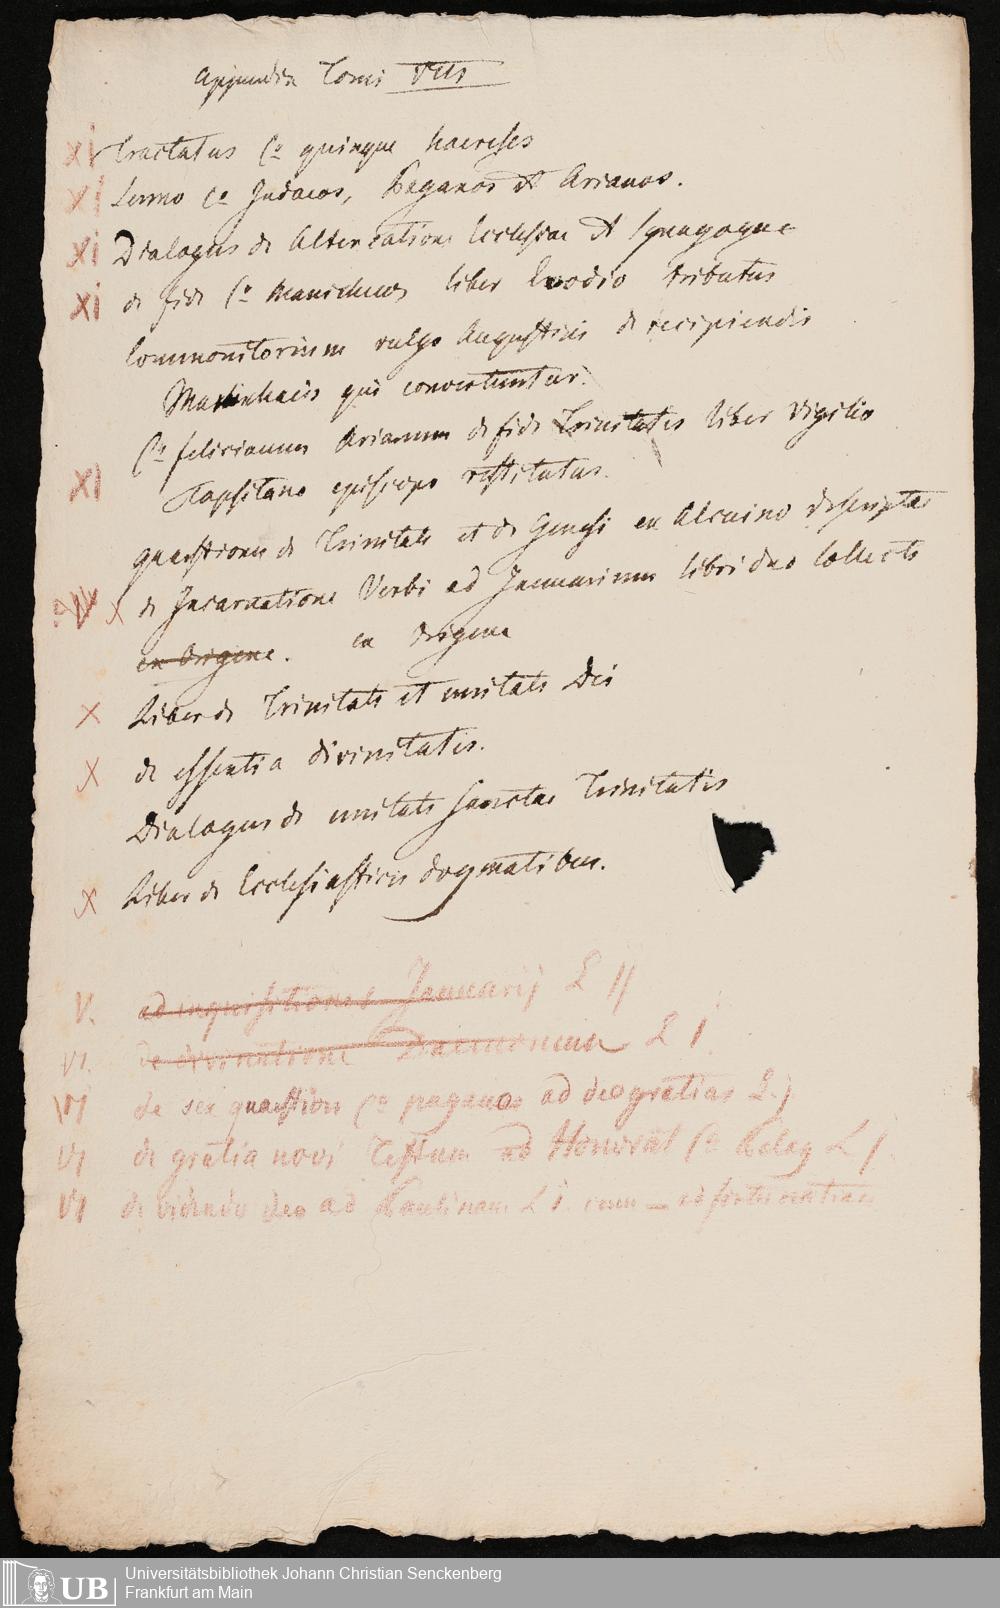 Appendix Tomi VIII
XI Tractatus Cª quinque haereses
XI Sermo Cª Judaeos, Paganos et Arianos.
XI Dialogus de Altercatione Ecclesiae et Synagogae
XI de fide Cª Manichaeos liber Evodio tributus
Commonitorium vulgo Augustini de recipiendis
Manichaeis qui convertuntur.
Cª felicianum Arianum de fide Trinitatis liber Vigilio
XI Tapsitano episcopo restitutus.
quaestiones de Trinitate et de Genesi ex Alcuino descriptae
X de Incarnatione Verbi ad Januarium libri duo Collecti
ex Origene. ex Origene
X Liber de Trinitate et unitate Dei
X de essentia divinitatis.
Dialogus de unitate Sanctae Trinitatis
X Liber de Ecclesiasticis dogmatibus.
V. ad inquisitiones Januarij L II
VI. de divinatione Daemonum L I.
VI de sex quaestion Cª paganos ad deogratias L. j
VI de gratia novi Testam ad Honorat Cª Pelag L I.
VI de videndo deo ad Paulinam L I. cum ad fortunatian
Universitätsbibliothek Johann Christian Senckenberg
UB Frankfurt am Main